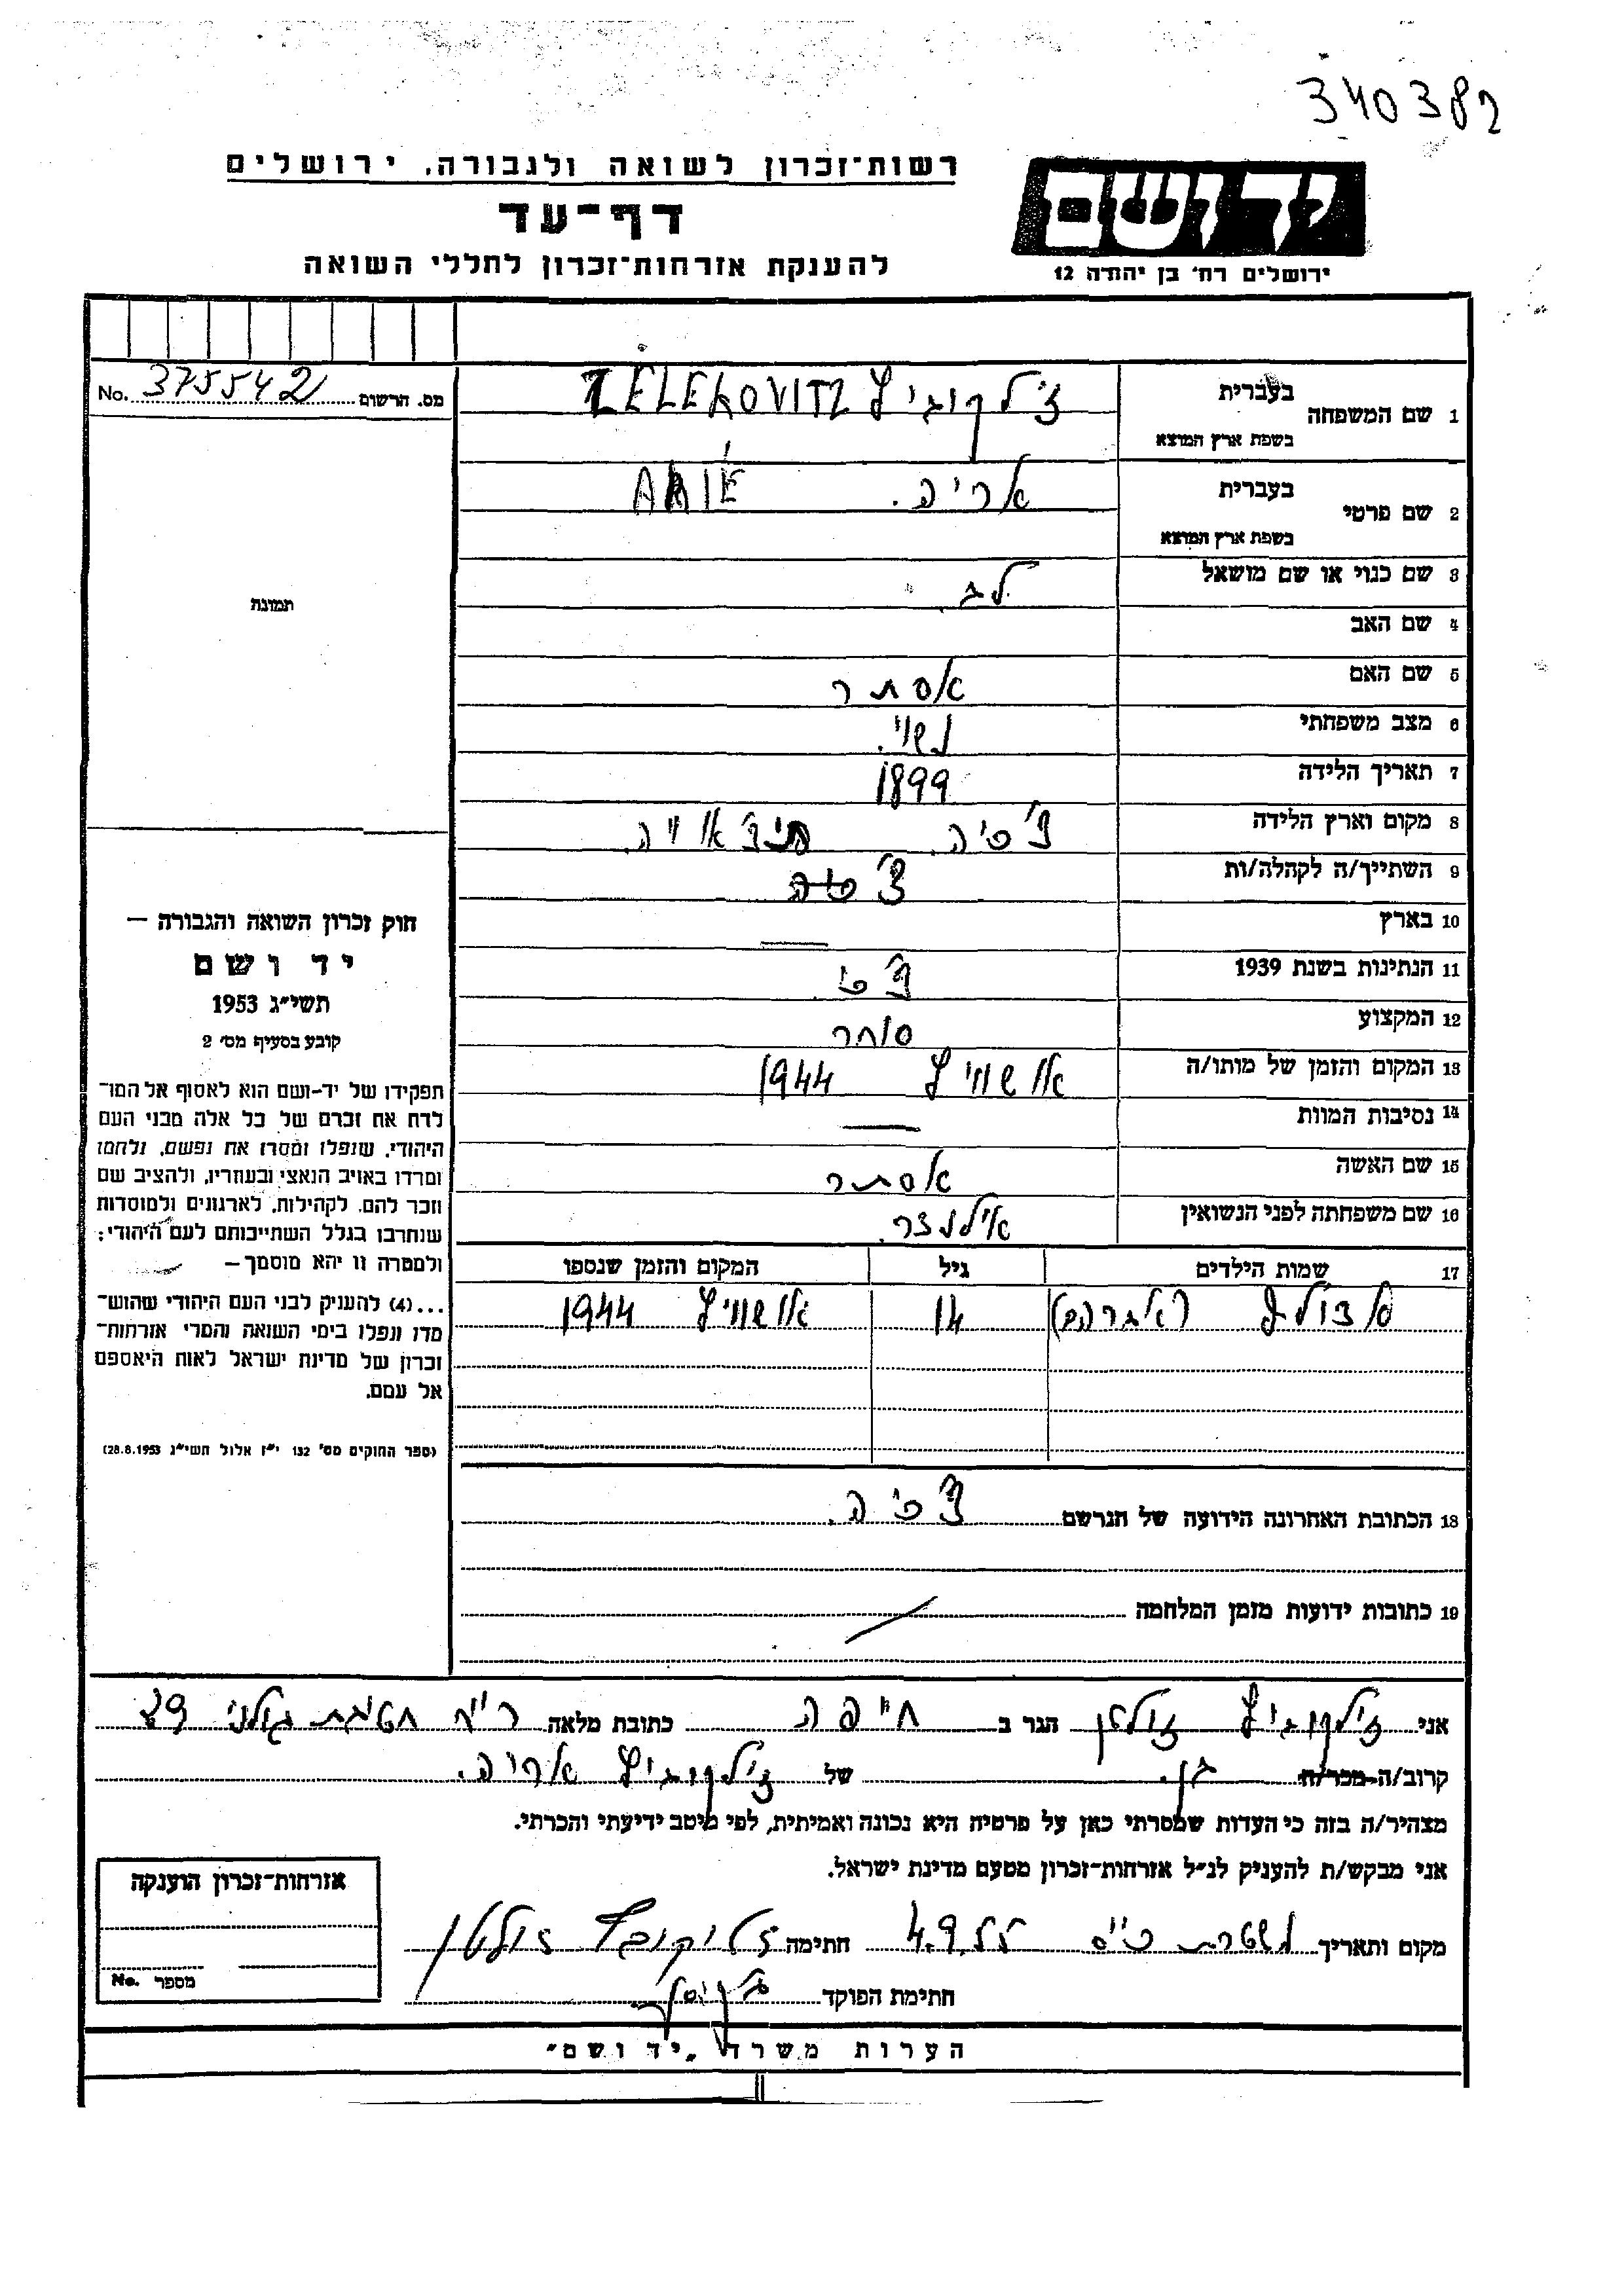 340382
רשות־זכרון לשואה ולגבורה, ירושלים
דף־עד
להענקת אזרחות־זכרון לחללי השואה
יד ושם
ירושלים רח' בן יהודה 12
מס. הרשום 375542 No.
תמונה
חוק זכרון השואה והגבורה —
יד ושם
תשי״ג 1953
קובע בסעיף מס' 2
תפקידו של יד-ושם הוא לאסוף אל המו־
לדת את זכרם של כל אלה מבני העם
היהודי, שנפלו ומסרו את נפשם, נלחמו
ומרדו באויב הנאצי ובעוזריו, ולהציב שם
וזכר להם, לקהילות, לארגונים ולמוסדות
שנחרבו בגלל השתייכותם לעם היהודי;
ולמטרה זו יהא מוסמך —
...(4) להעניק לבני העם היהודי שהוש־
מדו ונפלו בימי השואה והמרי אזרחות־
זכרון של מדינת ישראל לאות היאספם
אל עמם.
(ספר החוקים מס' 132 י״ז אלול תשי״ג 28.8.1953)
1 שם המשפחה בעברית בשפת ארץ המוצא זילקוביץ ZELEKOVITZ
2 שם פרטי בעברית בשפת ארץ המוצא אריה. ARIE
3 שם כנוי או שם מושאל לב.
4 שם האב
5 שם האם אסתר
6 מצב משפחתי נשוי.
7 תאריך הלידה 1899
8 מקום וארץ הלידה צ'כיה.
9 השתייך/ה לקהלה/ות
10 בארץ —
11 הנתינות בשנת 1939 צ'כ
12 המקצוע סוחר
13 המקום והזמן של מותו/ה אושוויץ 1944
14 נסיבות המוות —
15 שם האשה אסתר
16 שם משפחתה לפני הנשואין
17 שמות הילדים גיל המקום והזמן שנספו
(אברהם) 14 אושוויץ 1944
18 הכתובת האחרונה הידועה של הנרשם צ'כיה.
19 כתובות ידועות מזמן המלחמה
אני זילקוביץ זולטן הגר ב חיפה כתובת מלאה רח' חטיבת גולני 29
קרוב/ה מכר/ה בן. של זילקוביץ אריה.
מצהיר/ה בזה כי העדות שמסרתי כאן על פרטיה היא נכונה ואמיתית, לפי מיטב ידיעתי והכרתי.
אני מבקש/ת להעניק לנ״ל אזרחות-זכרון מטעם מדינת ישראל.
מקום ותאריך משטרת 4.9.55 חתימה זליקוביץ זולטן
חתימת הפוקד
אזרחות־זכרון הוענקה
מספר No.
הערות משרד „יד ושם״